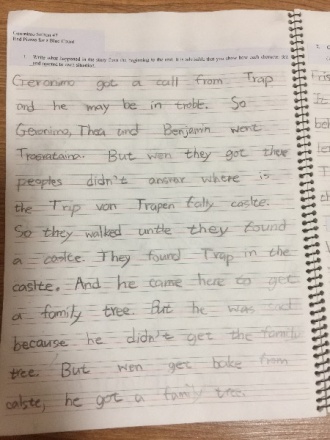 Geronimo Stilton #7
Red Pizzas for a Blue Count
1. Write what happened in the story from the beginning to the end.
Geronimo got a call from Trap
and he may be in troble. So
Geronimo, Thea and Benjamin went
But wen they got there
peoples didn't answer where is
the Trip von Trapen fally caslte.
So they walked untle they found
a caslte. They found Trap in the
caslte. And he came here to get
a family tree. But he was sad
because he didn't get the family
tree. But wen get bake from
calste, he got a family tree.